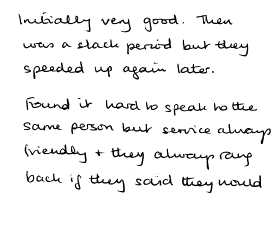 Initially very good. Then
was a slack period but they
speeded up again later.
Found it hard to speak to the
same person but service always
friendly + they always rang
back if they said they would